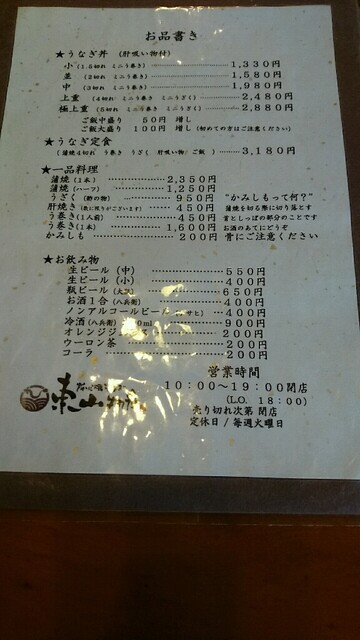 お品書き
★うなぎ丼 (肝吸い物付)
小 (1.5切れ ミニう巻き) 1,330円
並 (2切れ ミニう巻き) 1,580円
中 (3切れ ミニう巻き) 1,980円
上重 (4切れ ミニう巻き ミニうざく) 2,480円
極上重 (5切れ ミニう巻き ミニうざく) 2,880円
ご飯中盛り 50円 増し
ご飯大盛り 100円 増し (初めての方はご注意ください)
★うなぎ定食
(蒲焼4切れ う巻き うざく 肝吸い物 ご飯 ) 3,180円
★一品料理
蒲焼 (1本) 2,350円
蒲焼 (ハーフ) 1,250円
うざく (酢の物) 950円 "かみしもって何?"
肝焼き (数に限りがございます) 450円 蒲焼を切る際に切り落とす
う巻き (1人前) 450円 首としっぽの部分のことです
う巻き (1本) 1,600円 お酒のあてにどうぞ
かみしも 200円 骨にご注意ください
★お飲み物
生ビール (中) 550円
生ビール (小) 400円
瓶ビール 650円
お酒1合 (八兵衛) 400円
ノンアルコールビール 400円
冷酒 (八兵衛 900円
オレンジジ 200円
ウーロン茶 200円
コーラ 200円
営業時間
10:00～19:00閉店
(LO. 18:00)
売り切れ次第 閉店
定休日/毎週火曜日
東山